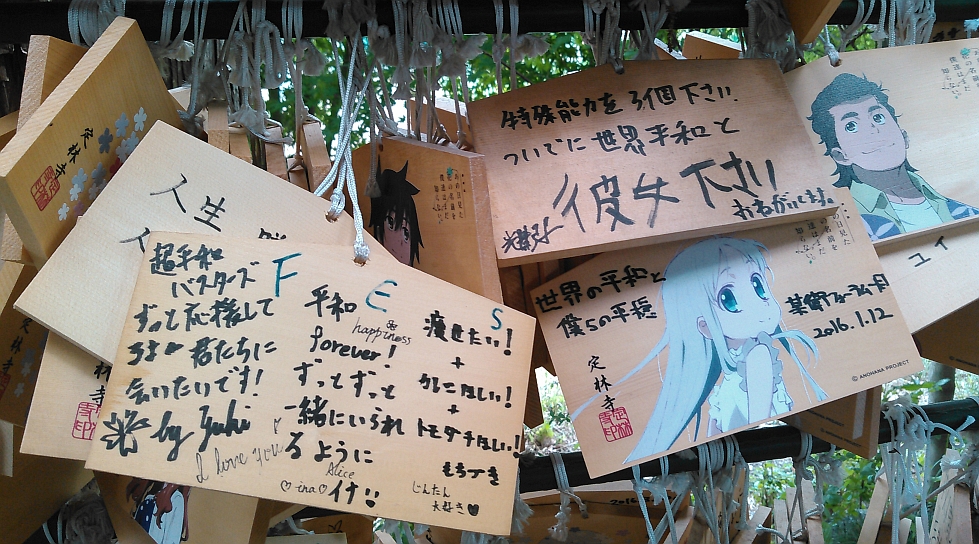 特殊能力を3個下さい!
ついでに世界平和と
彼女下さい
おねがいします。
定林寺
人生
超平和
バスターズ
ずっと応援して
君たちに
会いたいです!
by Yuki
F
E
S
平和
happiness
forever!
ずっとずっと
一緒にいられ
るように
I love you
Alice
ina
イナ
痩せたい!
+
かにほしい!
+
トモダチほしい!!
もちづき
じんたん
大好き♥
世界の平和と
僕らの平穏
定林寺
2016.1.12
© ANOHANA PROJECT
あの日見た
花の名前を
僕達はまだ
知らない。
ユイ
林寺